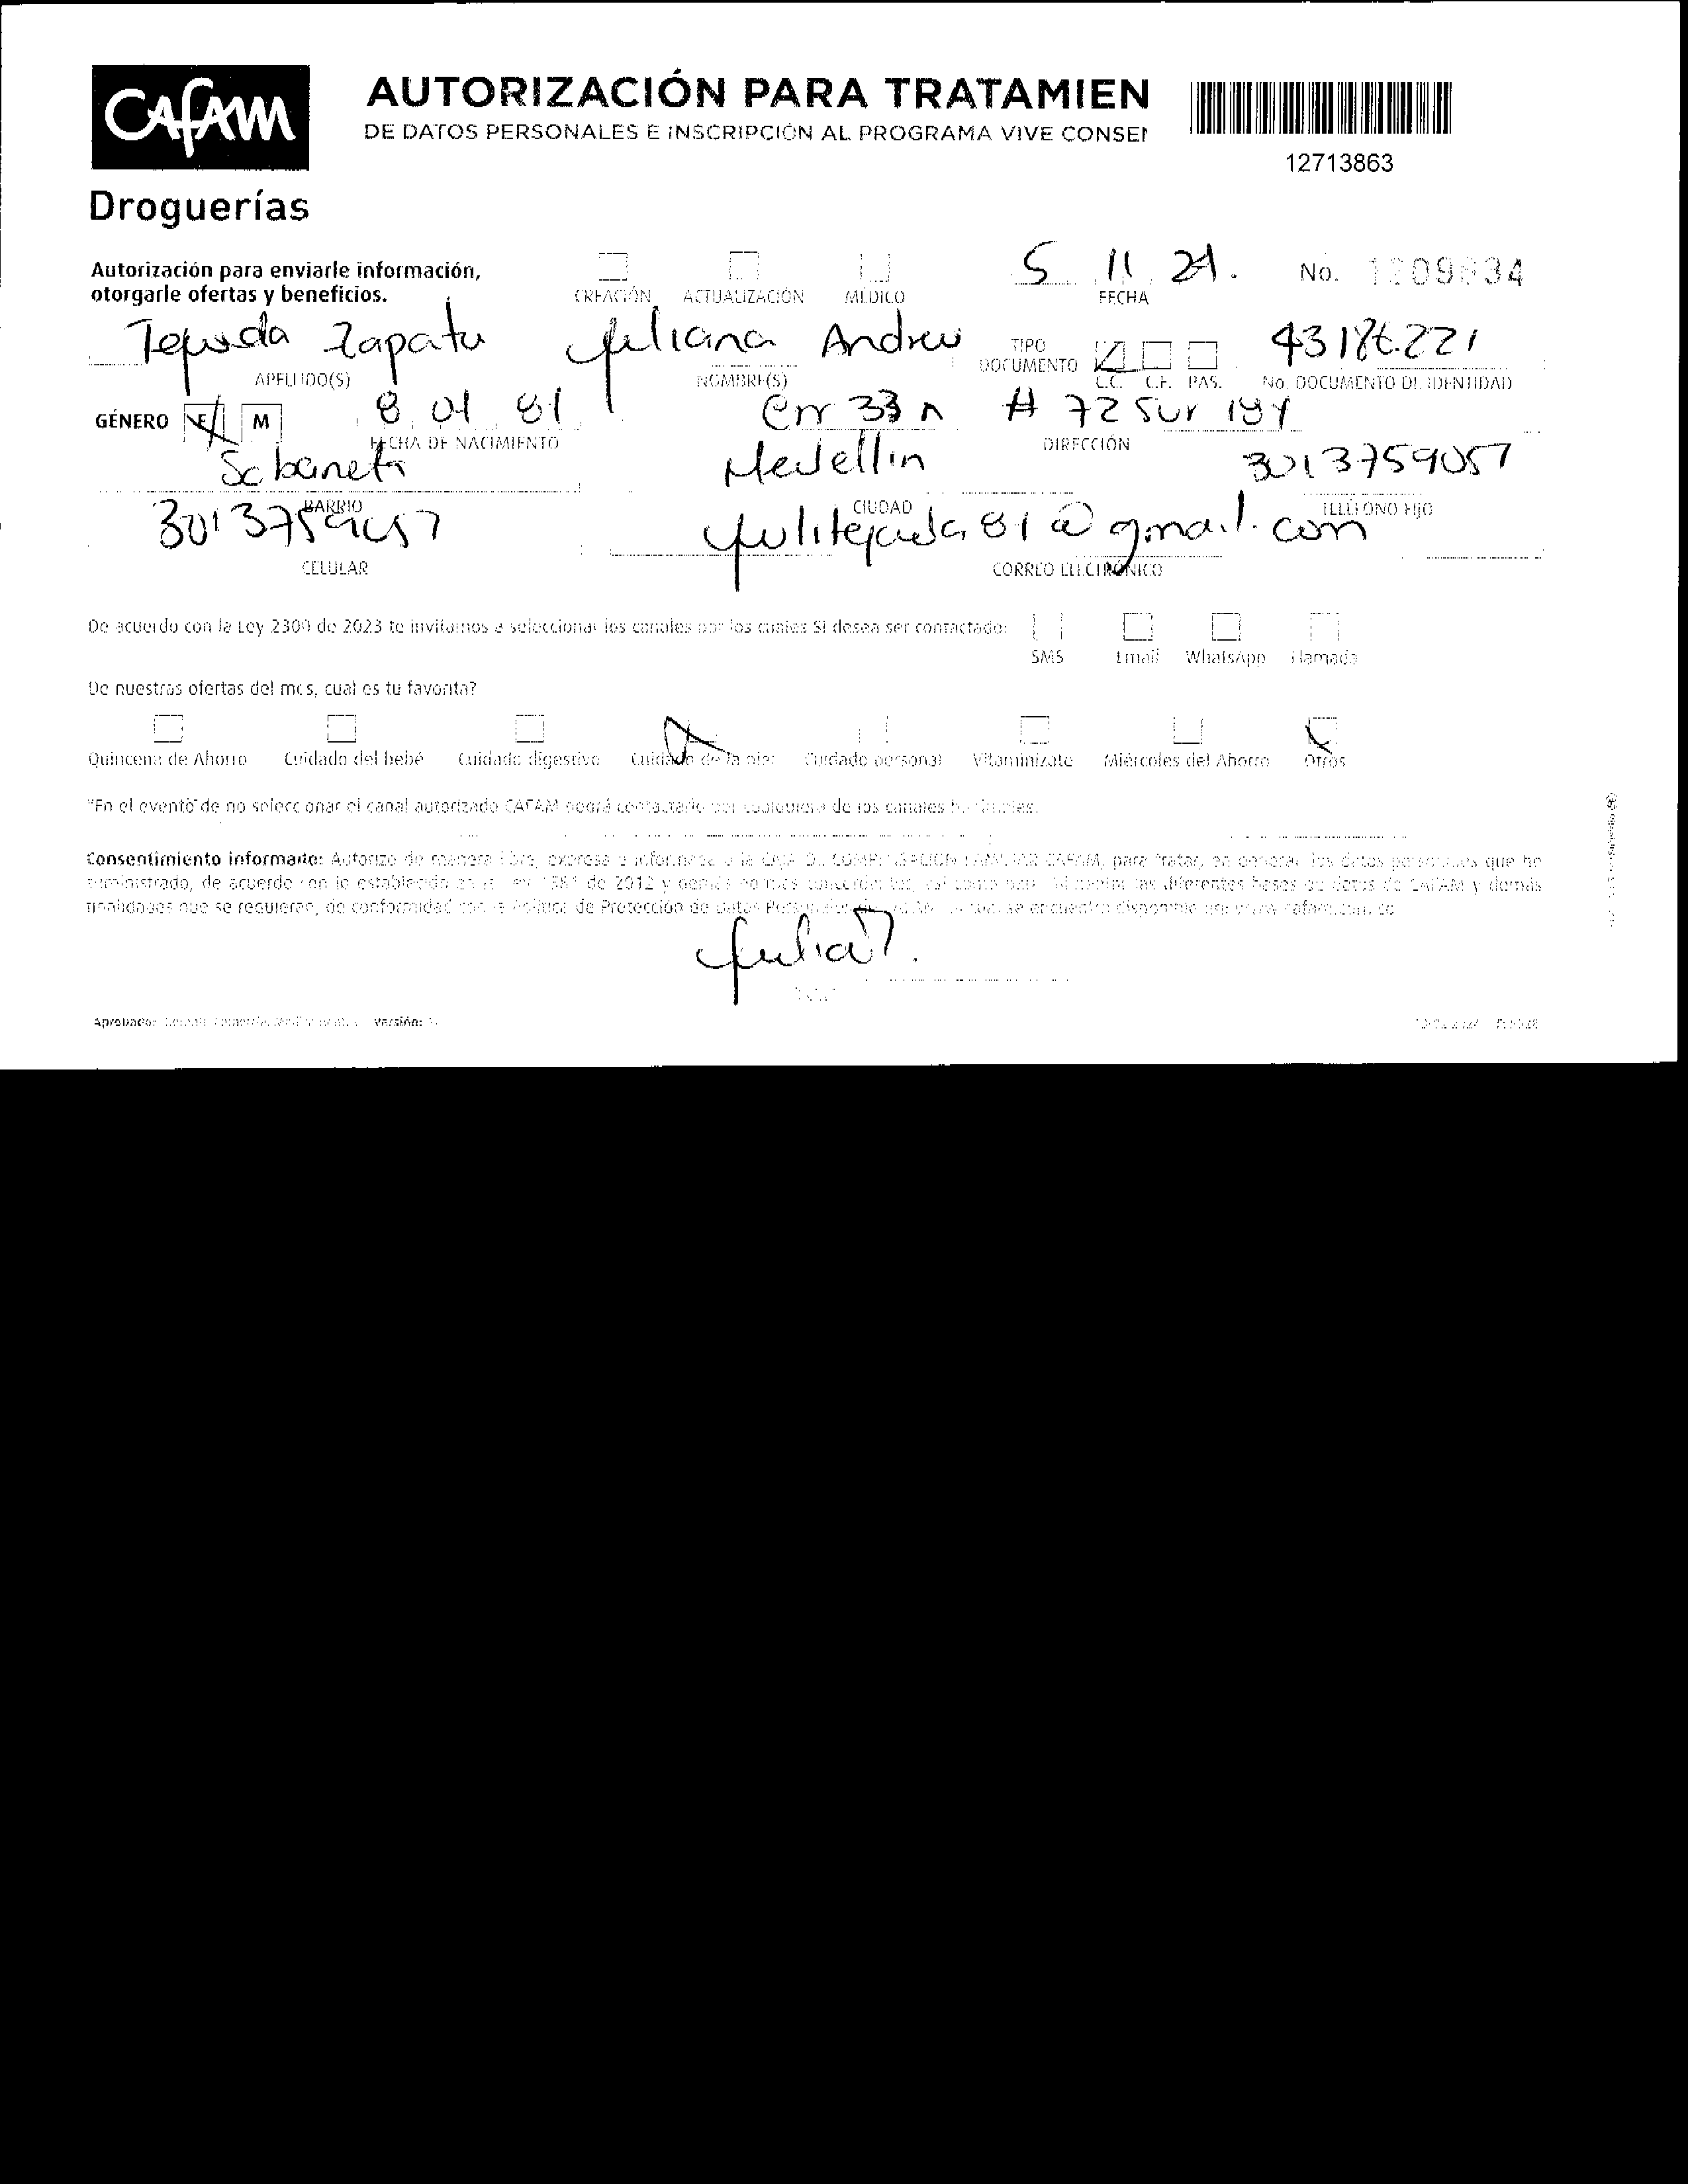 CAFAM
AUTORIZACIÓN PARA TRATAMIEN
DE DATOS PERSONALES E INSCRIPCIÓN AL PROGRAMA VIVE CONSEN
12713863
Droguerías
Autorización para enviarle información,
otorgarle ofertas y beneficios.
CREACIÓN ACTUALIZACIÓN MÉDICO
5 11 24.
FECHA
No.
Tejada Zapata Juliana Andrea
TIPO DOCUMENTO
C.C. C.E. PAS.
43186.221
APELLIDO(S) NOMBRE(S) No. DOCUMENTO DE IDENTIDAD
GÉNERO F M 8 01 81 Crr 33 A # 72 Sur
FECHA DE NACIMIENTO DIRECCIÓN
Sabaneta Medellin 3013759057
BARRIO CIUDAD TELÉFONO FIJO
3013759057 julitejada81@gmail.com
CELULAR CORREO ELECTRÓNICO
De acuerdo con la Ley 2300 de 2023 te invitamos a seleccionar los canales por los cuales SI desea ser contactado:
SMS Email WhatsApp Llamada
De nuestras ofertas del mes, cual es tu favorita?
Quincena de Ahorro Cuidado del bebé Cuidado digestivo Cuidado de la piel Cuidado personal Vitaminízate Miércoles del Ahorro Otros
"En el evento de no seleccionar el canal autorizado CAFAM podrá contactarlo por cualquiera de los canales
Consentimiento informado: Autorizo de manera libre, expresa e informada a la CAJA DE COMPENSACIÓN FAMILIAR CAFAM, para tratar, en general los datos personales que he
suministrado, de acuerdo con lo establecido en la Ley 1581 de 2012 y demás normas las diferentes bases de datos de CAFAM y demás
finalidades que se requieran, de conformidad con la Política de Protección de Datos se encuentra disponible en www.cafam.com.co
Julia T.
Aprobador: Versión: